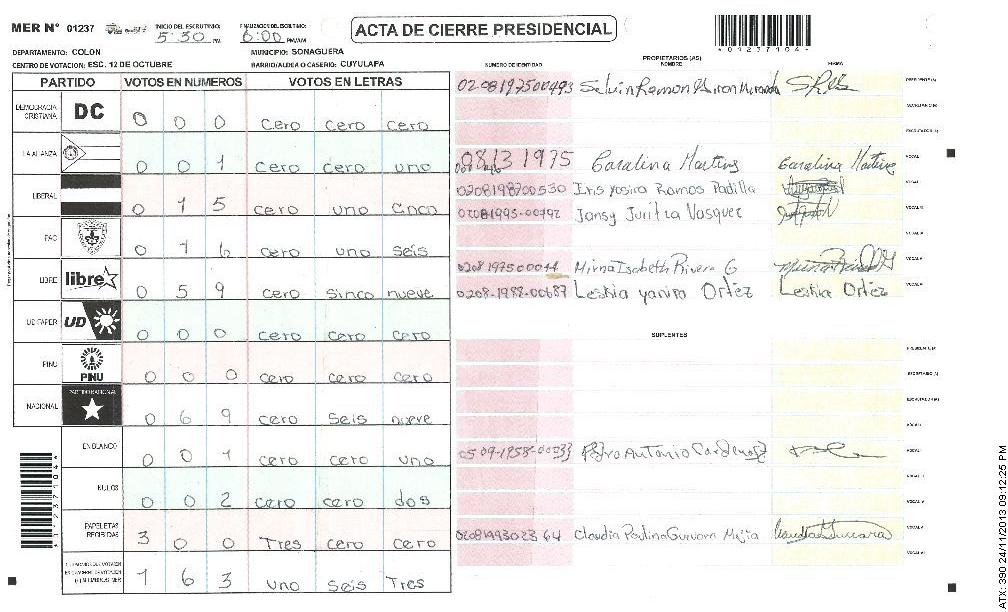 MER Nº 01237 INICIO DEL ESCRUTINIO: 5:30 PM FINALIZACION DEL ESCRUTINIO: 6:00 PM/AM
ACTA DE CIERRE PRESIDENCIAL
*01237104*
DEPARTAMENTO: COLON MUNICIPIO: SONAGUERA
CENTRO DE VOTACION: ESC. 12 DE OCTUBRE BARRIO/ALDEA O CASERIO: CUYULAPA
PARTIDO VOTOS EN NUMEROS VOTOS EN LETRAS
DEMOCRACIA CRISTIANA DC 0 0 0 cero cero cero
LA ALIANZA 0 0 1 cero cero uno
LIBERAL 0 1 5 cero uno cinco
PAC 0 1 6 cero uno seis
LIBRE libre 0 5 9 cero sinco nueve
UD FAPER UD 0 0 0 cero cero cero
PINU PINU 0 0 0 cero cero cero
NACIONAL PARTIDO NACIONAL 0 6 9 cero seis nueve
EN BLANCO 0 0 1 cero cero uno
NULOS 0 0 2 cero cero dos
PAPELETAS RECIBIDAS 3 0 0 Tres cero cero
1 6 3 uno seis Tres
*01237104*
PROPIETARIOS (AS)
NUMERO DE IDENTIDAD NOMBRE FIRMA
0208197500493 Selvin Ramon Giron Miranda
PRESIDENTE (A)
SECRETARIO (A)
ESCRUTADOR (A)
0813 1975 Caralina Martins Caralina Martins
VOCAL I
0208198700530 Iris yasira Ramos Padilla
VOCAL II
02081993-00492 Jansy Juritza Vasquez
VOCAL III
VOCAL IV
0208197500044 Mirna Isabeth Rivera G
VOCAL V
0208-1988-00687 Leskia yanira Ortéz Leskia Ortéz
SUPLENTES
PRESIDENTE (A)
SECRETARIO (A)
ESCRUTADOR (A)
VOCAL I
0509-1958-00033 Pedro Antonio Cardenas
VOCAL II
VOCAL III
VOCAL IV
0208199302364 Claudia Paulina Guevara Mejia Claudia Guevara
ATX: 390 24/11/2013 09:12:25 PM